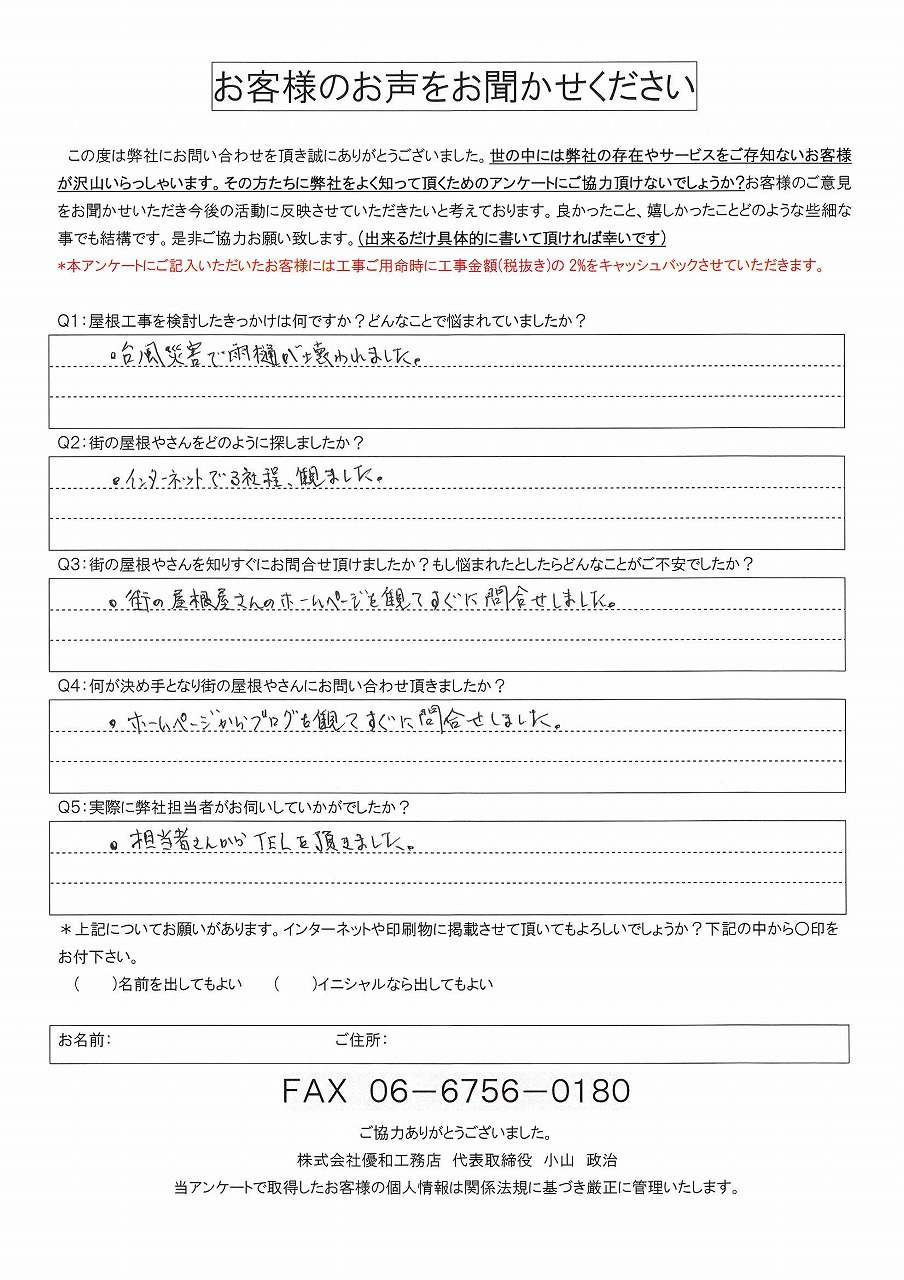 お客様のお声をお聞かせください
この度は弊社にお問い合わせを頂き誠にありがとうございました。世の中には弊社の存在やサービスをご存知ないお客様
が沢山いらっしゃいます。その方たちに弊社をよく知って頂くためのアンケートにご協力頂けないでしょうか?お客様のご意見
をお聞かせいただき今後の活動に反映させていただきたいと考えております。良かったこと、嬉しかったことどのような些細な
事でも結構です。是非ご協力お願い致します。(出来るだけ具体的に書いて頂ければ幸いです)
*本アンケートにご記入いただいたお客様には工事ご用命時に工事金額(税抜き)の 2%をキャッシュバックさせていただきます。
Q1:屋根工事を検討したきっかけは何ですか?どんなことで悩まれていましたか?
。台風災害で雨樋が壊われました。
Q2:街の屋根やさんをどのように探しましたか?
。インターネットで3社程、観ました。
Q3:街の屋根やさんを知りすぐにお問合せ頂けましたか?もし悩まれたとしたらどんなことがご不安でしたか?
。街の屋根屋さんのホームページを観てすぐに問合せしました。
Q4:何が決め手となり街の屋根やさんにお問い合わせ頂きましたか?
。ホームページからブログを観てすぐに問合せしました。
Q5:実際に弊社担当者がお伺いしていかがでしたか?
。担当者さんからTELを頂きました。
*上記についてお願いがあります。インターネットや印刷物に掲載させて頂いてもよろしいでしょうか?下記の中から〇印を
お付下さい。
(　　)名前を出してもよい　　(　　)イニシャルなら出してもよい
お名前:　ご住所:
FAX 06-6756-0180
ご協力ありがとうございました。
株式会社優和工務店　代表取締役　小山　政治
当アンケートで取得したお客様の個人情報は関係法規に基づき厳正に管理いたします。